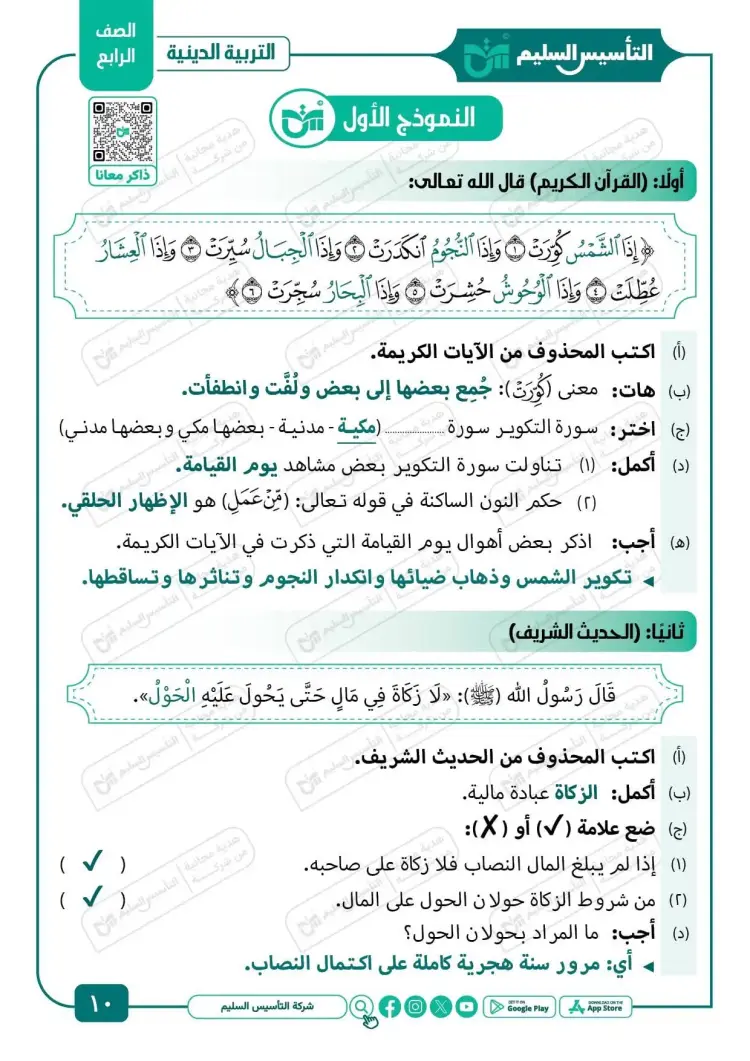 الصف
الرابع
التربية الدينية
التأسيس السليم
ذاكر معانا
النموذج الأول
أولًا: (القرآن الكريم) قال الله تعالى:
﴿ إِذَا ٱلشَّمْسُ كُوِّرَتْ ١ وَإِذَا ٱلنُّجُومُ ٱنكَدَرَتْ ٢ وَإِذَا ٱلْجِبَالُ سُيِّرَتْ ٣ وَإِذَا ٱلْعِشَارُ
عُطِّلَتْ ٤ وَإِذَا ٱلْوُحُوشُ حُشِرَتْ ٥ وَإِذَا ٱلْبِحَارُ سُجِّرَتْ ٦ ﴾
(أ) اكتب المحذوف من الآيات الكريمة.
(ب) هات: معنى (كُوِّرَتْ): جُمِع بعضها إلى بعض ولُفَّت وانطفأت.
(ج) اختر: سورة التكوير سورة .................... (مكية - مدنية - بعضها مكي وبعضها مدني)
(د) أكمل: (١) تناولت سورة التكوير بعض مشاهد يوم القيامة.
(٢) حكم النون الساكنة في قوله تعالى: (مِّنْ عَمَلٍ) هو الإظهار الحلقي.
(ه) أجب: اذكر بعض أهوال يوم القيامة التي ذكرت في الآيات الكريمة.
◂ تكوير الشمس وذهاب ضيائها وانكدار النجوم وتناثرها وتساقطها.
ثانيًا: (الحديث الشريف)
قَالَ رَسُولُ الله (ﷺ): «لَا زَكَاةَ فِي مَالٍ حَتَّى يَحُولَ عَلَيْهِ الْحَوْلُ».
(أ) اكتب المحذوف من الحديث الشريف.
(ب) أكمل: الزكاة عبادة مالية.
(ج) ضع علامة (✓) أو (✗):
(١) إذا لم يبلغ المال النصاب فلا زكاة على صاحبه. ( ✓ )
(٢) من شروط الزكاة حولان الحول على المال. ( ✓ )
(د) أجب: ما المراد بحولان الحول؟
◂ أي: مرور سنة هجرية كاملة على اكتمال النصاب.
١٠
شركة التأسيس السليم
GET IT ON Google Play
Download on the App Store
هدية مجانية من شركة التأسيس السليم